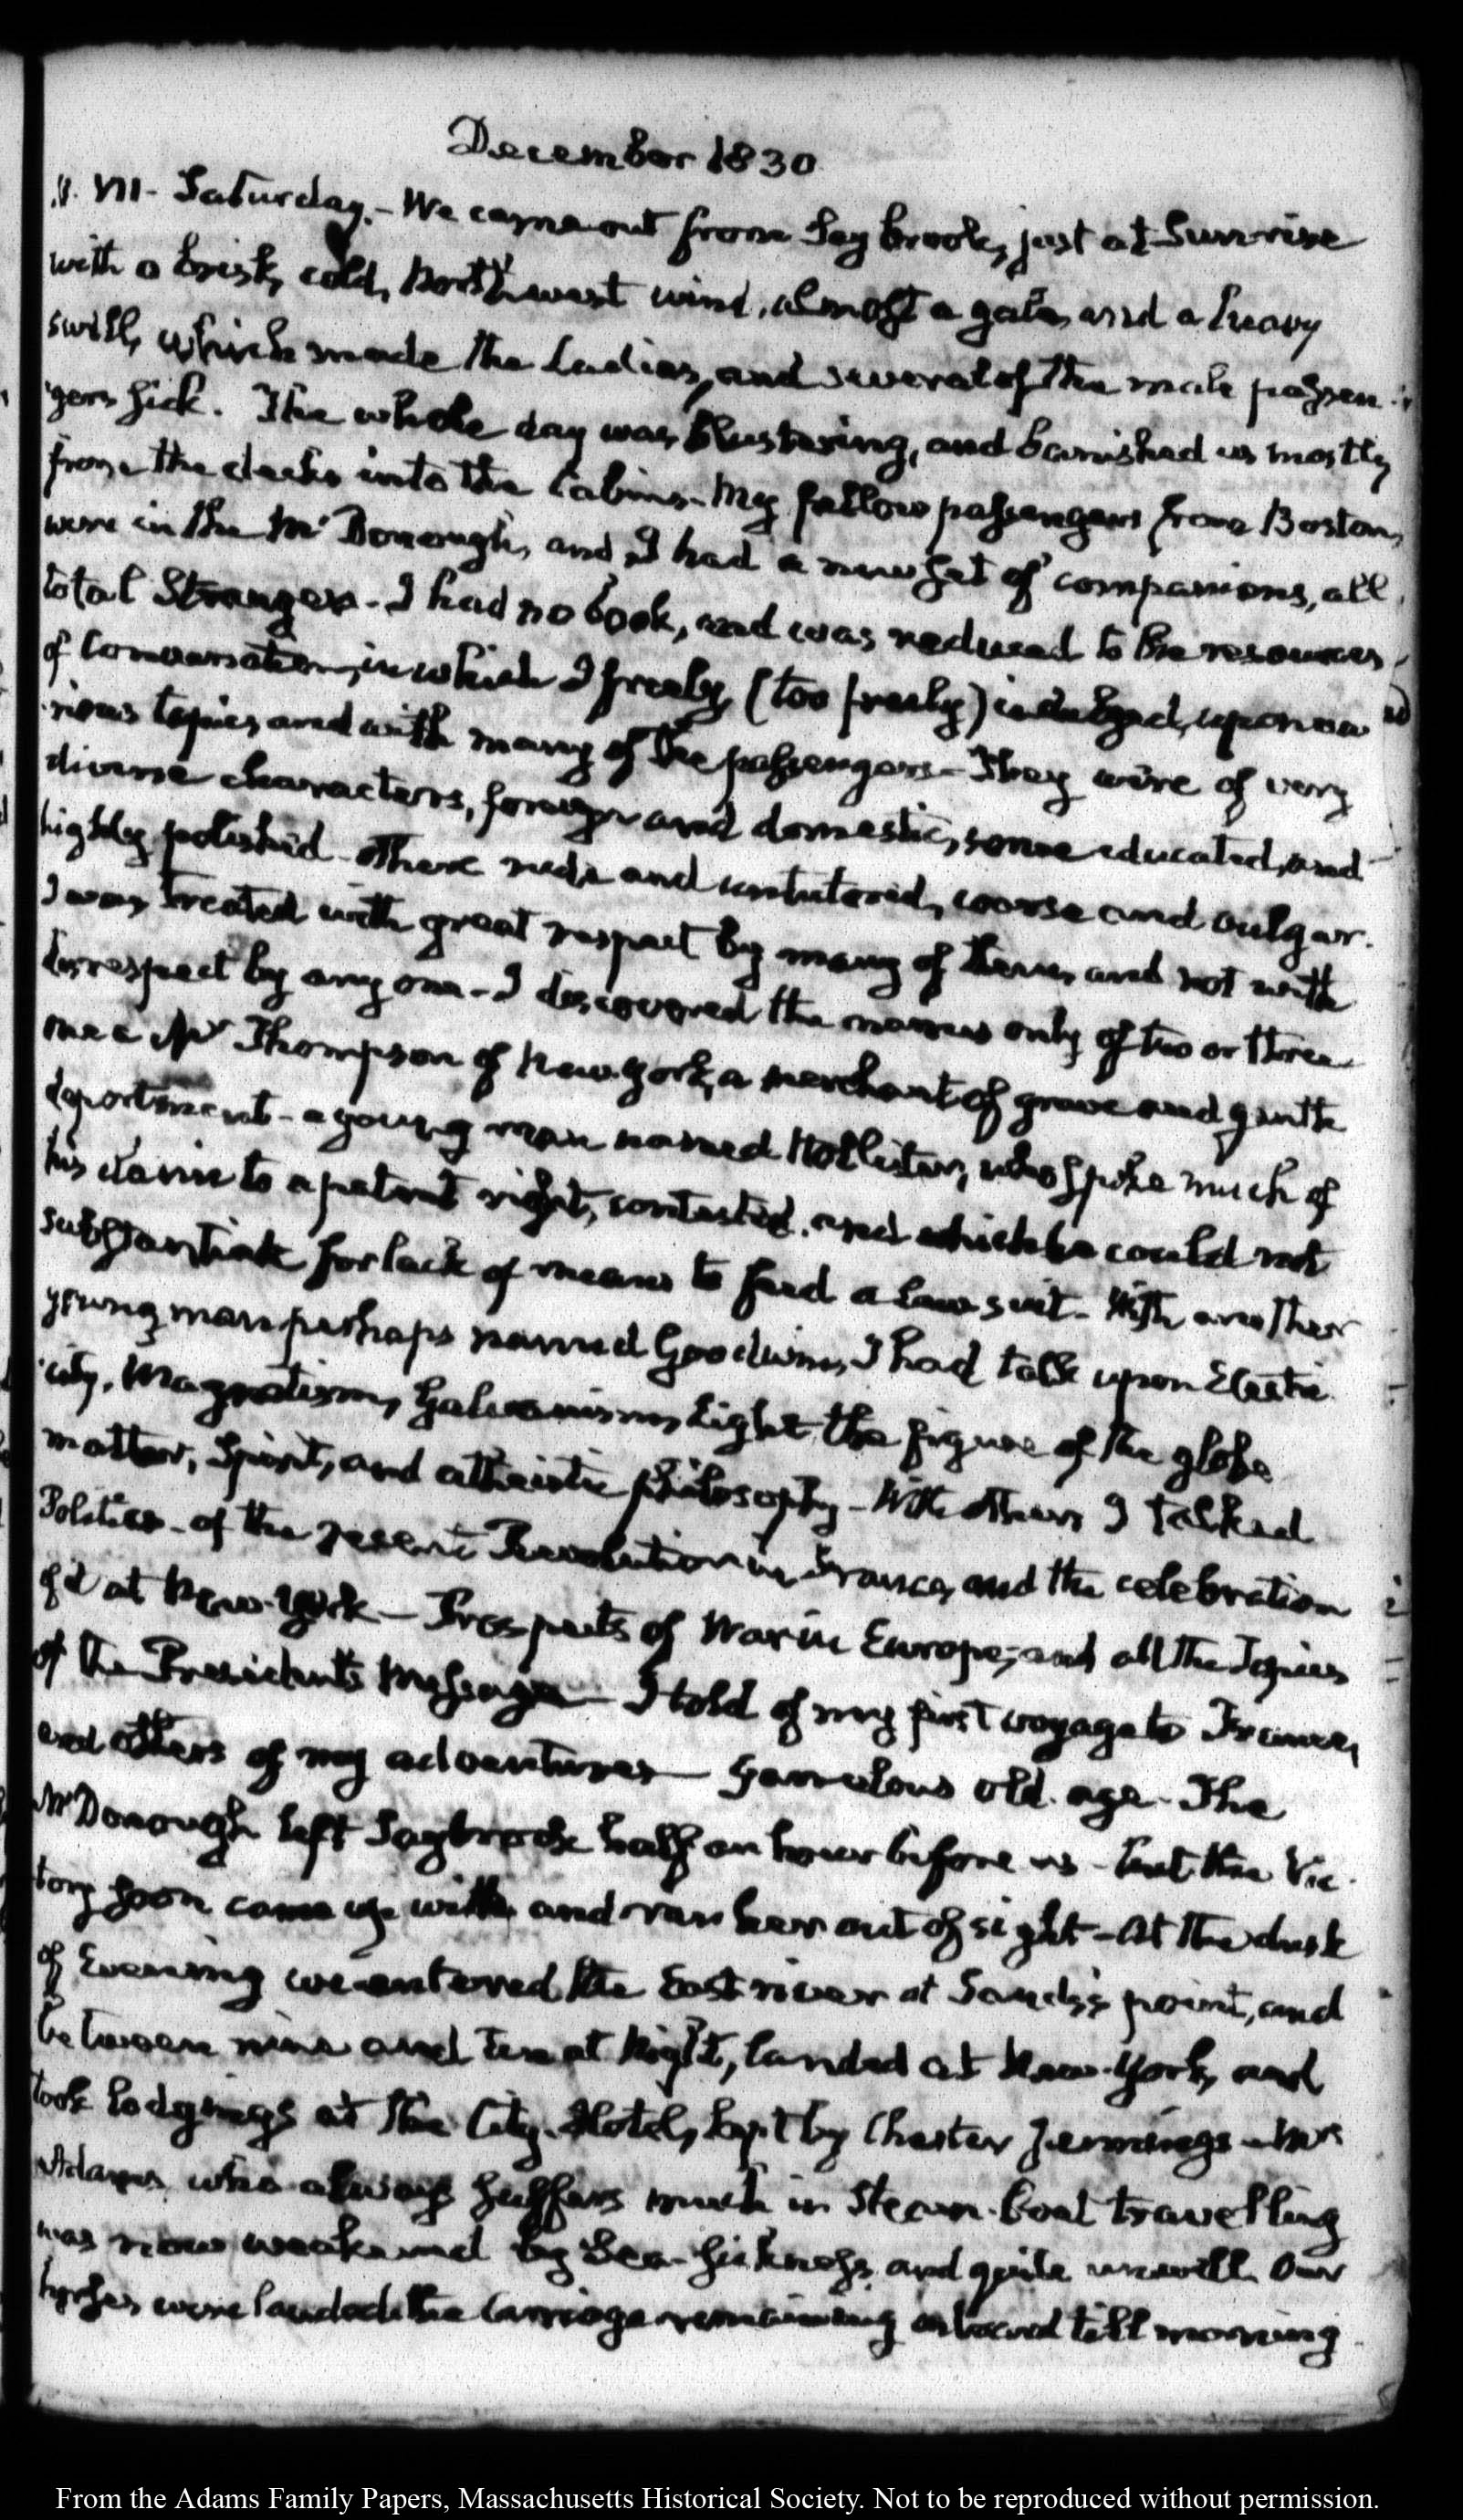 December 1830
11. VII. Saturday.- We came out from Saybrook, just at Sunrise
with a brisk, cold, Northwest wind, almost a gale, and a heavy
swell, which made the Ladies, and several of the male passen-
gers sick. The whole day was blustering, and banished us mostly
from the decks into the Cabins- My fellow passengers from Boston,
were in the McDonough, and I had a new set of companions, all
total Strangers- I had no book, and was reduced to the resources
of Conversation, in which I freely, (too freely) indulged, upon va-
rious topics, and with many of the passengers- They were of very
diverse characters, foreign and domestic, some educated, and
highly polished- others rude and untutored, coarse and vulgar.
I was treated with great respect by many of them, and not with
disrespect by any one- I discovered the names only of two or three
one a Mr Thompson of New-York, a merchant of grave and gentle
deportment- a young man named Hollister, who spoke much of
his claim to a patent right, contested, and which he could not
substantiate for lack of means to feed a law suit- With another
young man perhaps named Goodwin, I had talk upon Electri-
city, Magnetism, Galvanism, Light, the figure of the globe
matter, Spirit, and atheistic philosophy- With others I talked
Politics- of the recent Revolution in France, and the celebration
of it at New-York- Prospects of War in Europe; and all the Topics
of the President's Message- I told of my first voyage to France,
and others of my adventures- Garrulous old age- The
McDonough left Saybrook half an hour before us- but the Vic-
tory soon came up with and ran her out of sight- At the dusk
of Evening we entered the East river at Sands's point, and
between nine and ten at Night, landed at New-York, and
took lodgings at the City-Hotel, kept by Chester Jennings- Mrs
Adams who always suffers much in Steam-boat travelling
was now weakened by Sea-sickness, and quite unwell. Our
horses were landed, the Carriage remaining on board till morning
From the Adams Family Papers, Massachusetts Historical Society. Not to be reproduced without permission.